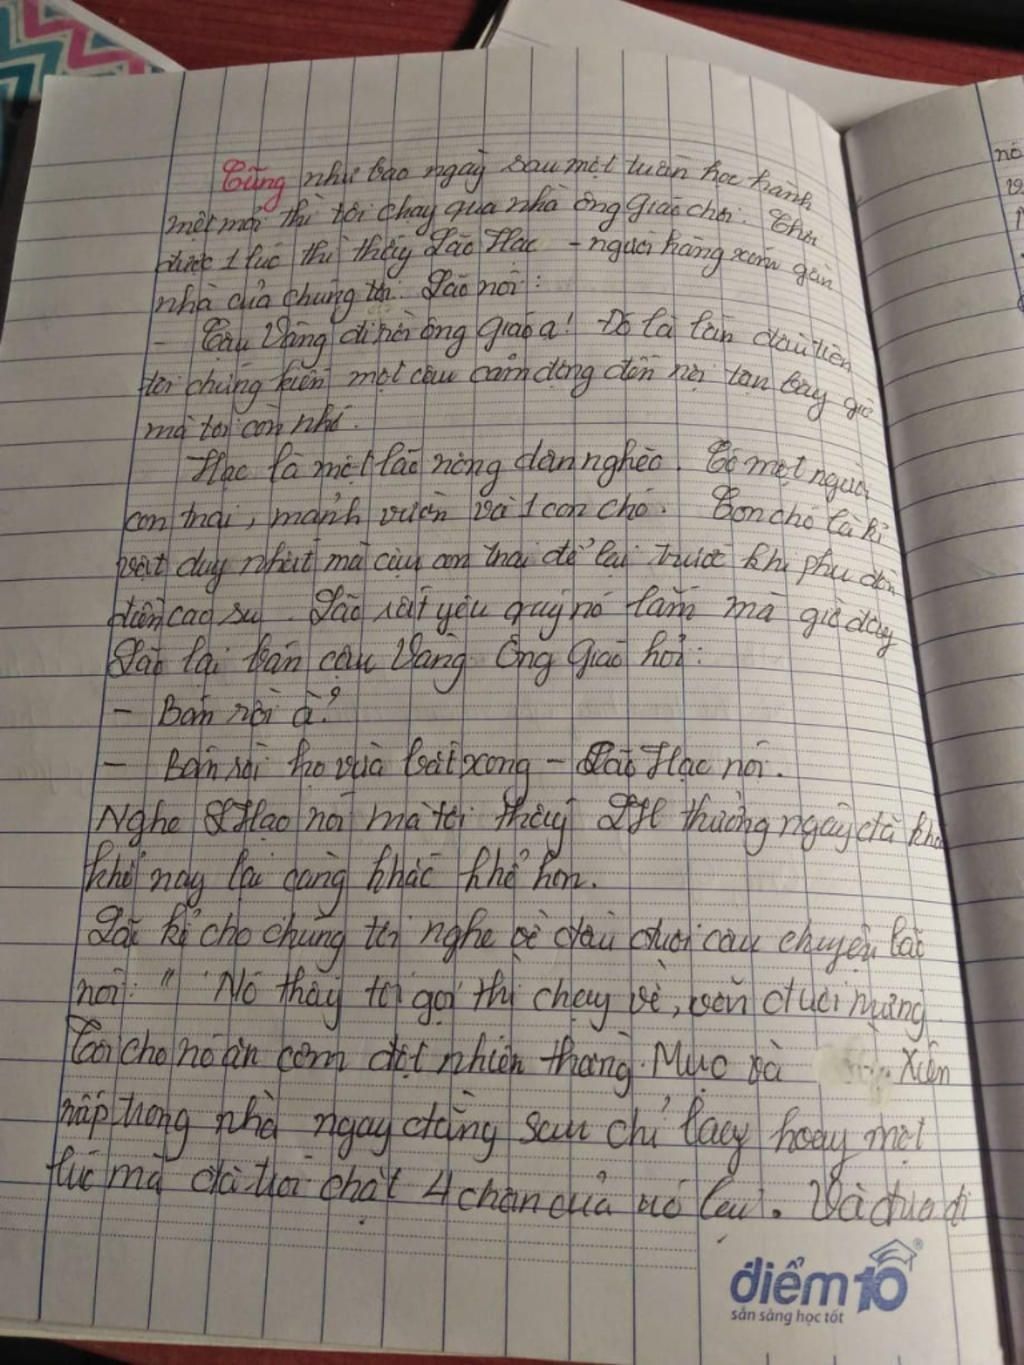 Cũng như bao ngày sau một tuần học hành
mệt mỏi thì tôi chạy qua nhà ông giáo chơi. Chơi
được 1 lúc thì thấy Lão Hạc - người hàng xóm gần
nhà của chúng tôi. Lão nói:
- Cậu Vàng đi rồi ông giáo ạ! Đó là lần đầu tiên
tôi chứng kiến một câu cảm động đến nỗi tận bây giờ
mà tôi còn nhớ.
Hạc là một lão nông dân nghèo. Có một người
con trai, mảnh vườn và 1 con chó. Con chó là kỉ
vật duy nhất mà cậu con trai để lại trước khi phu đồn
điền cao su. Lão rất yêu quý nó lắm mà giờ đây
Lão lại bán cậu Vàng. Ông Giáo hỏi:
- Bán rồi à?
- Bán rồi họ vừa bắt xong - Lão Hạc nói.
Nghe LHạc nói mà tôi thấy LH thường ngày đã khắc
khổ nay lại càng khắc khổ hơn.
Lão kể cho chúng tôi nghe về đầu đuôi câu chuyện lão
nói: " Nó thấy tôi gọi thì chạy về, vẫn đuôi mừng.
Tôi cho nó ăn cơm đột nhiên thằng Mục và Xiên
nấp trong nhà ngay đằng sau chỉ loay hoay một
lúc mà đã trói chặt 4 chân của nó lại. Và đưa đi
điểm 10
sẵn sàng học tốt
nó